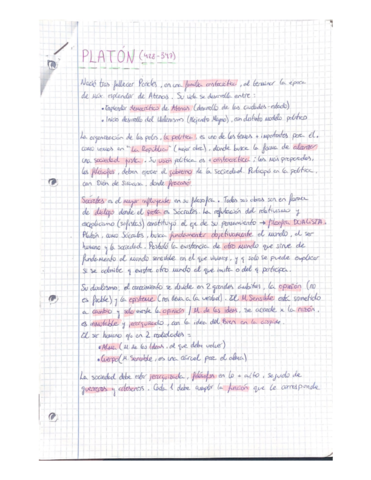 PLATÓN (422-347)
Nació tras fallecer Pericles, en una familia aristocrática, al terminar la época
de más esplendor de Atenas. Su vida se desarrolló entre:
• Depresión democrática de Atenas (desarrollo de las ciudades-estado).
• Inicio desarrollo del Helenismo (Alejandro Magno), con distinto modelo político
La organización de las polis, la política es uno de los temas + importantes para él,
como vemos en "La República" (mejor obra), donde busca la forma de
una sociedad justa. Su visión política es + aristocrática: los más preparados,
los filósofos, deben ejercer el gobierno de la Sociedad. Participa en la política,
con Dión de Siracusa, donde fracasó
Sócrates es el mayor influyente en su filosofía. Todas sus obras son en forma
de diálogo donde el prota es Sócrates. La refutación del relativismo y
escepticismo (sofistas) constituyó el eje de su pensamiento → filosofía DUALISTA.
Platón, como Sócrates, busca fundamentar objetivamente el mundo, el ser
humano y la sociedad. Postuló la existencia de otro mundo que sirve de
fundamento al mundo sensible en el que vivimos, y q solo se puede explicar
si se admite q existe otro mundo al que imita o del q participa.
Su dualismo, el conocimiento se divide en 2 grandes ámbitos, la opinión (no
es fiable) y la episteme (nos lleva a la verdad). El M. Sensible está sometido
a cambio y solo existe la opinión / M. de las ideas, se accede x la razón,
es inmutable y , con la idea del Bien en la cúspide.
El ser humano q es 2 realidades =
• Alma (M de las Ideas, al que debe volver)
• Cuerpo (M Sensible, es una cárcel para el alma)
La sociedad debe estar jerarquizada, filósofos en lo + alto, seguido de
guerreros y artesanos. Cada 1 debe cumplir la función que le corresponde